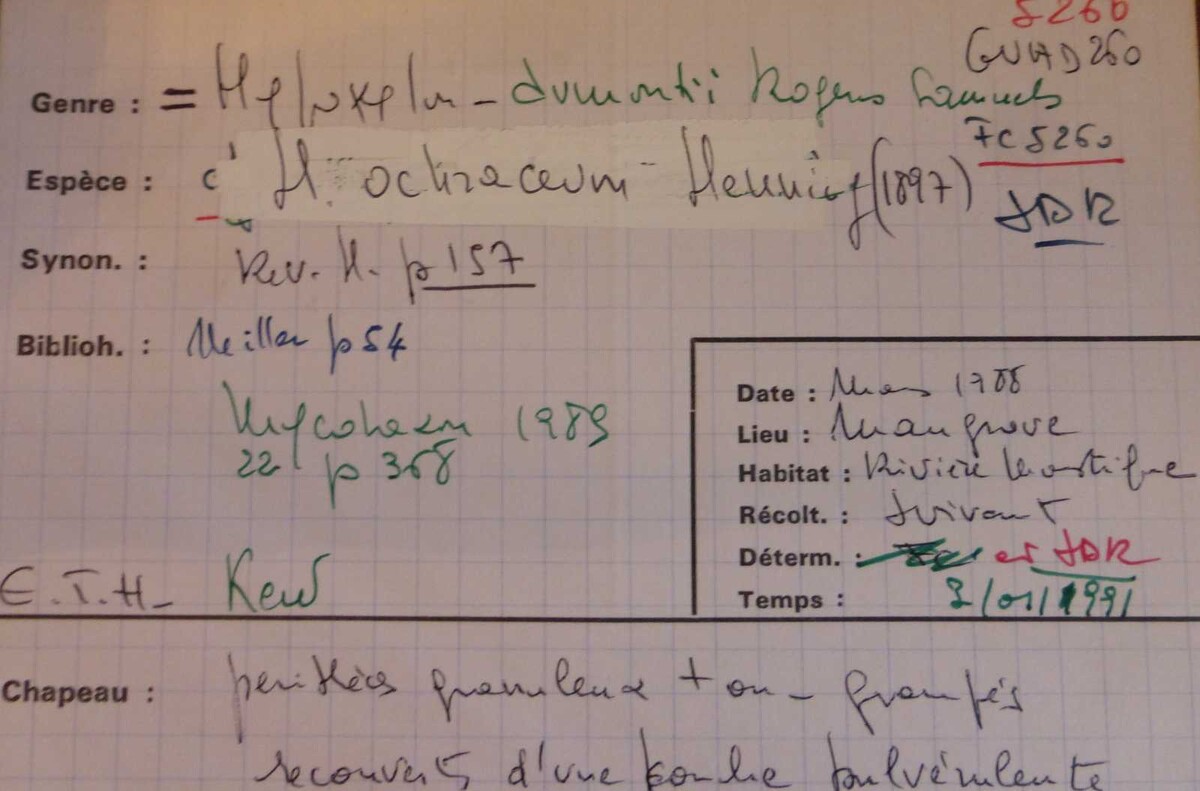 5260
GUAD 260
Genre : = Hypoxylon - dumontii Rogers Samuels
FC 5260
Espèce : H. ochraceum Hennings (1897)
JDR
Synon. : Rev. H. p 157
Biblioh. : Meiller p 54
Mycotaxon 1989
22 p 368
Date : Mars 1988
Lieu : Mangrove
Habitat : Rivière Moustique
Récolt. : Suivant
Déterm. : et JDR
Temps : /01/1991
E.T.H- Kew
Chapeau : perithèces granuleux + ou - groupés
recouverts d'une couche pulvérulente